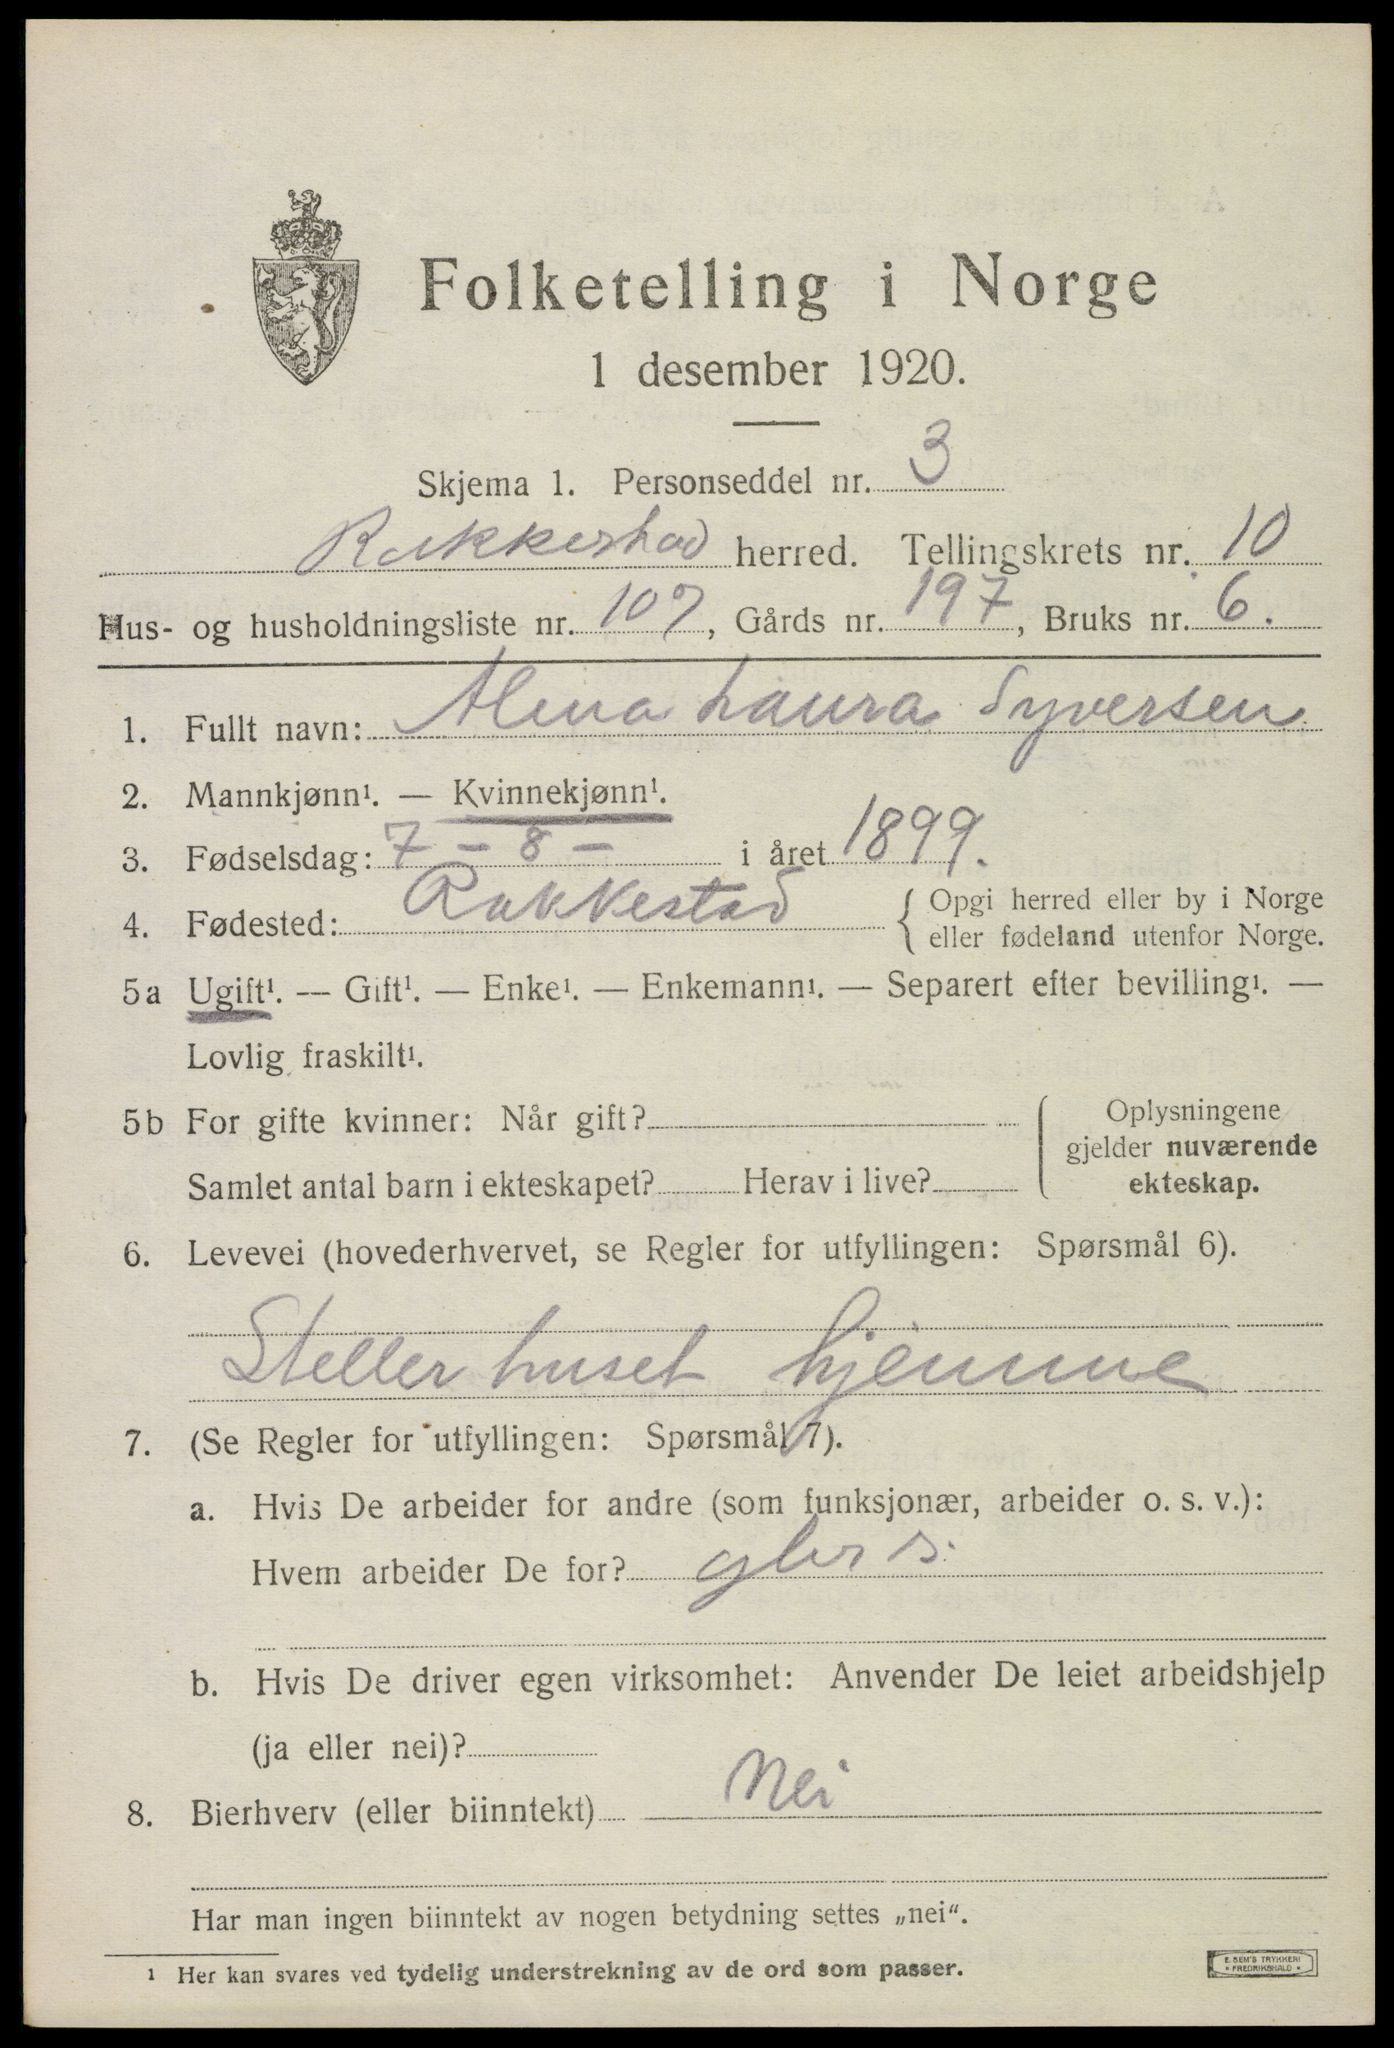 Folketelling i Norge
1 desember 1920.
Skjema 1. Personseddel nr. 3
Rakkestad herred. Tellingskrets nr. 10
Hus- og husholdningsliste nr. 107, Gårds nr. 197, Bruks nr. 6.
1. Fullt navn: Alma Laura Syversen
2. Mannkjønn¹. — Kvinnekjønn¹.
3. Fødselsdag: 7 – 8 – i året 1899.
4. Fødested: Rakkestad { Opgi herred eller by i Norge
eller fødeland utenfor Norge.
5a Ugift¹. — Gift¹. — Enke¹. — Enkemann¹. — Separert efter bevilling¹. —
Lovlig fraskilt¹.
5b For gifte kvinner: Når gift?
Samlet antal barn i ekteskapet? Herav i live?
Oplysningene
gjelder nuværende
ekteskap.
6. Levevei (hovederhvervet, se Regler for utfyllingen: Spørsmål 6).
Steller huset hjemme
7. (Se Regler for utfyllingen: Spørsmål 7).
a. Hvis De arbeider for andre (som funksjonær, arbeider o. s. v.):
Hvem arbeider De for?
b. Hvis De driver egen virksomhet: Anvender De leiet arbeidshjelp
(ja eller nei)?
8. Bierhverv (eller biinntekt) Nei
Har man ingen biinntekt av nogen betydning settes „nei“.
¹ Her kan svares ved tydelig understrekning av de ord som passer.
E. SEM'S TRYKKERI
FREDRIKSHALD